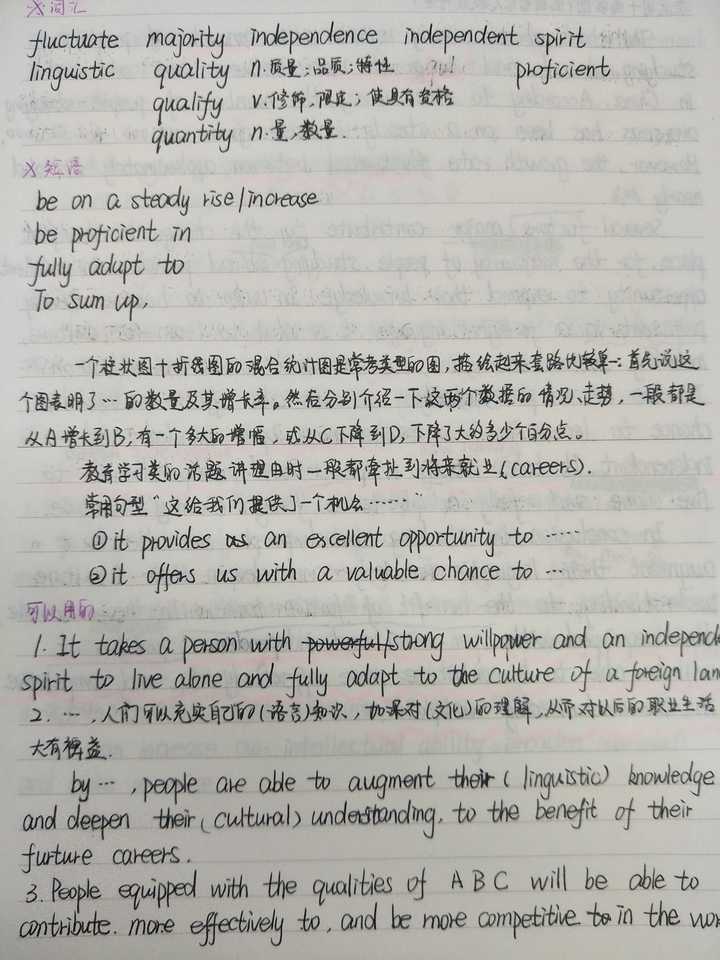 ※词汇
fluctuate majority independence independent spirit
linguistic quality n.质量;品质;特性 proficient
qualify v.修饰,限定;使具有资格
quantity n.量,数量.
※短语
be on a steady rise/increase
be proficient in
fully adapt to
To sum up,
一个柱状图+折线图的混合统计图是常考类型的图,描绘起来套路比较单一:首先说这
个图表明了…的数量及其增长率。然后分别介绍一下这两个数据的情况、走势,一般都是
从A增长到B,有一个多大的增幅,或从C下降到D,下降了大约多少个百分点。
教育学习类的话题讲理由时一般都牵扯到将来就业(careers).
常用句型“这给我们提供了一个机会……”
①it provides us an excellent opportunity to ……
②it offers us with a valuable chance to …
可以用的
1. It takes a person with powerful/strong willpower and an independe
spirit to live alone and fully adapt to the culture of a foreign lan
2. …,人们可以充实自己的(语言)知识,加深对(文化)的理解,从而对以后的职业生活
大有裨益.
by …, people are able to augment their (linguistic) knowledge
and deepen their (cultural) understanding, to the benefit of their
furture careers.
3. People equipped with the qualities of A B C will be able to
contribute. more effectively to, and be more competitive to in the wor